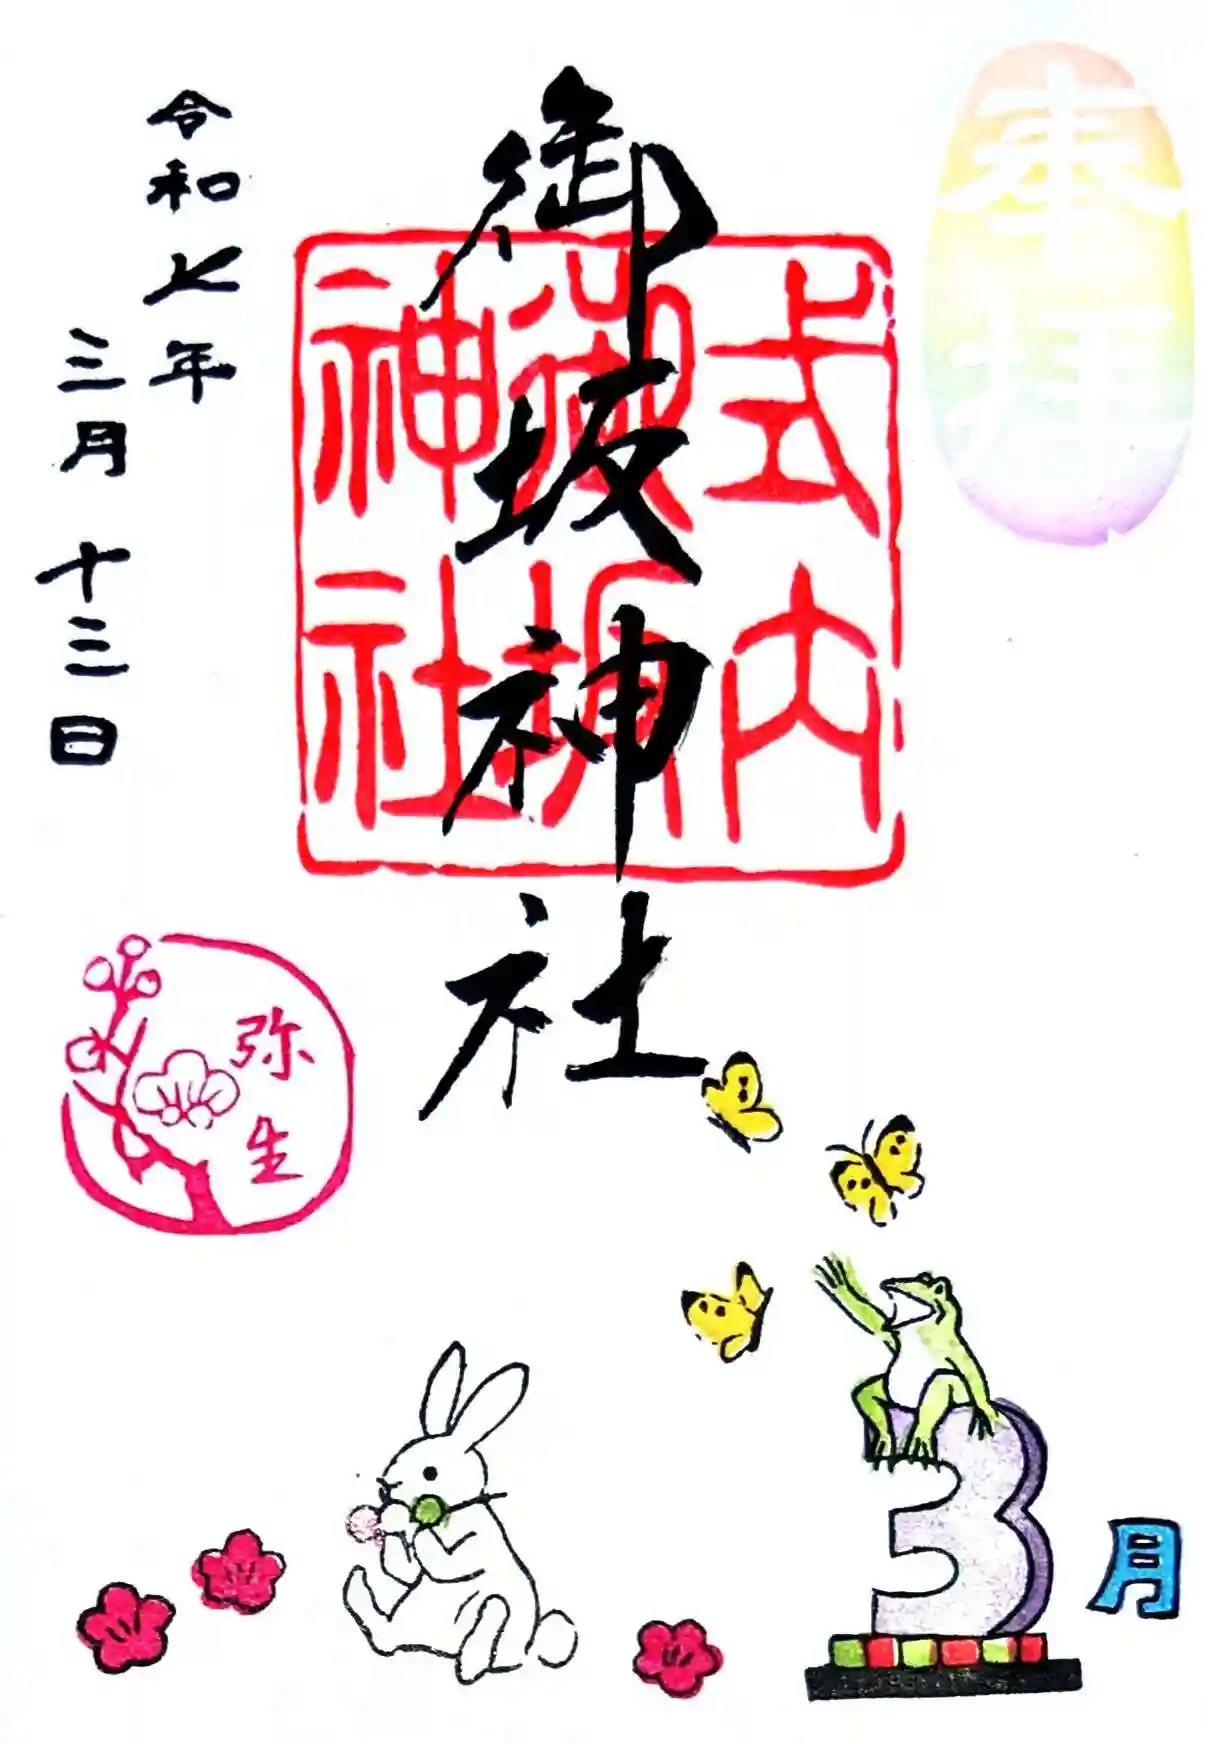 奉拝
御坂神社
式内
御坂
神社
令和七年
三月 十三日
弥生
3月